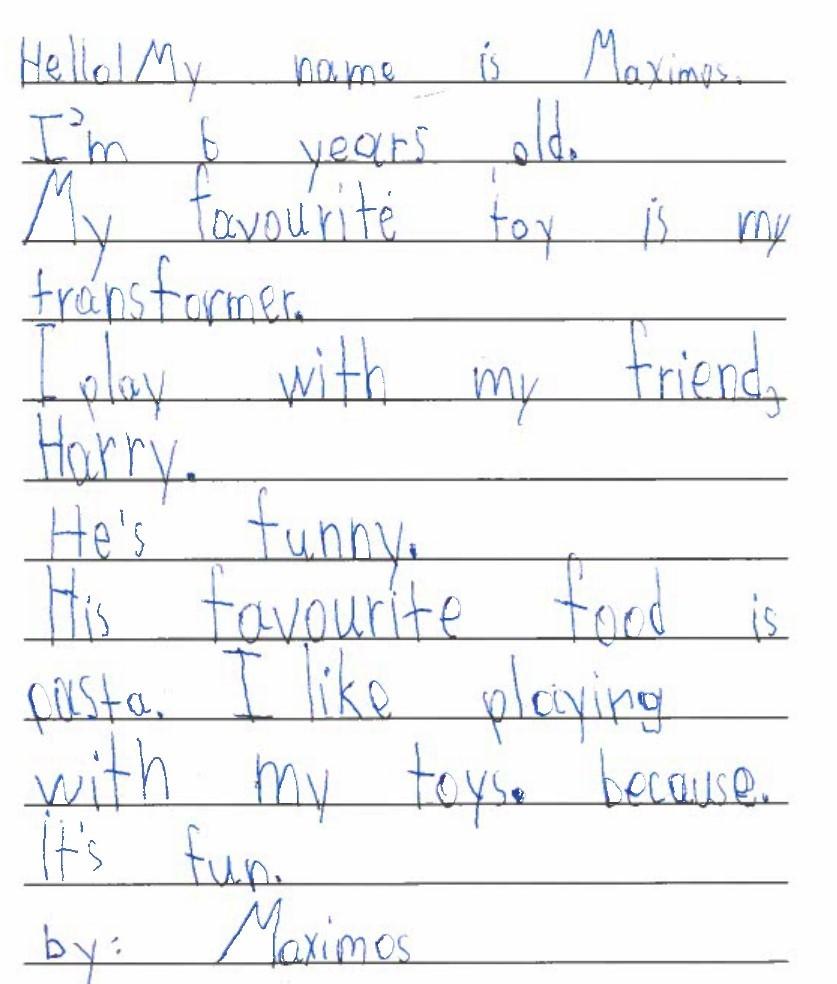 Hello! My name is Maximos.
I'm 6 years old.
My favourite toy is my
transformer.
I play with my friend,
Harry.
He's funny.
His favourite food is
pasta. I like playing
with my toys. because.
it's fun.
by: Maximos